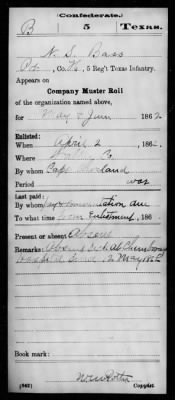 (Confederate.)
B 5 Texas.
N. S. Bass
Pvt, Co. K, 5 Reg't Texas Infantry.
Appears on
Company Muster Roll
of the organization named above,
for May & June 1862
Enlisted:
When April 2, 1862
Where Co.
By whom Capt
Period war
Last paid:
By whom due
To what time from Enlistment, 186
Present or absent Absent
Remarks: Absent sick at
Hospital since 12 May 1862
Book mark:
(642) Copyist.